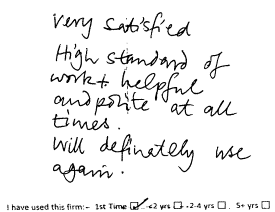 very satisfied
High standard of
work + helpful
and polite at all
times.
Will definately use
again.
I have used this firm:- 1st Time ☑ <2 yrs ☐ -2-4 yrs ☐ . 5+ yrs ☐